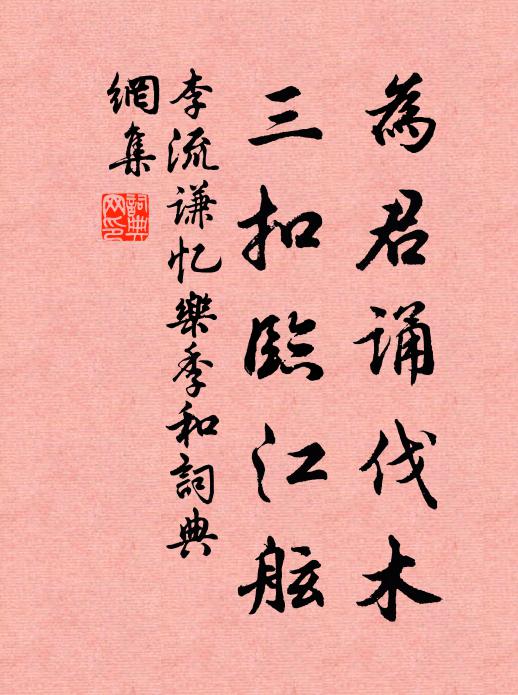 為君诵伐木
三扣臨江舷
李流谦忆樂季和詞典
網集
詞典
网印